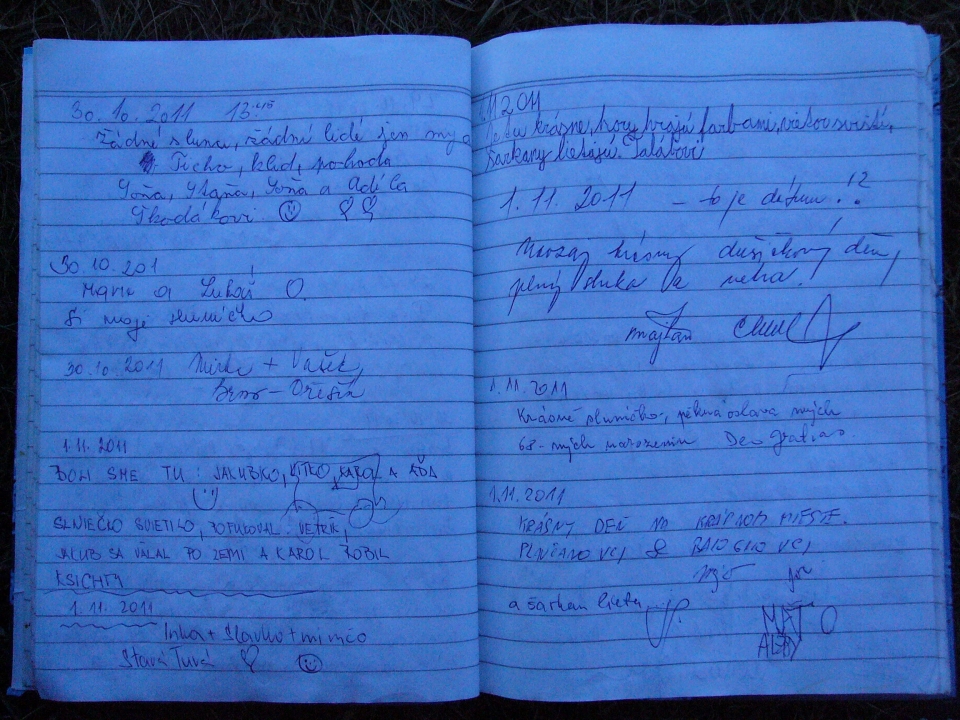 30.10.2011 13:45
žádné slunce, žádní lidé jen my a
Ticho, klid, pohoda
Soňa, Staňa, Soňa a Adéla
Škodákovi
30.10.201
Marie a Lukáš O.
Si moje sluníčko
30.10.2011 Mirka + Vašek,
Brno - Ořešín
1.11.2011
BOLI SME TU: JAKUBKO, KITKO, KAROL A AĎA
SLNIEČKO SVIETILO, POFUKOVAL VETRÍK,
JAKUB SA VÁĽAL PO ZEMI A KAROL ROBIL
KSICHTY
1.11.2011
Inka + Slavko + mimčo
Stará Turá
1.11.2011
Je tu krásne, hory hrajú farbami, vietor sviští,
šarkany lietajú.
1.11.2011 - to je dátum!?
krásny dušičkový deň,
plný slnka a neha!
majtán
1.11.2011
Krásné sluníčko, pěkná oslava mých
68-mých narozenin Deo gratias.
1.11.2011
KRÁSNY DEŇ NA KRÁSNOM MIESTE.
a šarkan lieta
MAŤO